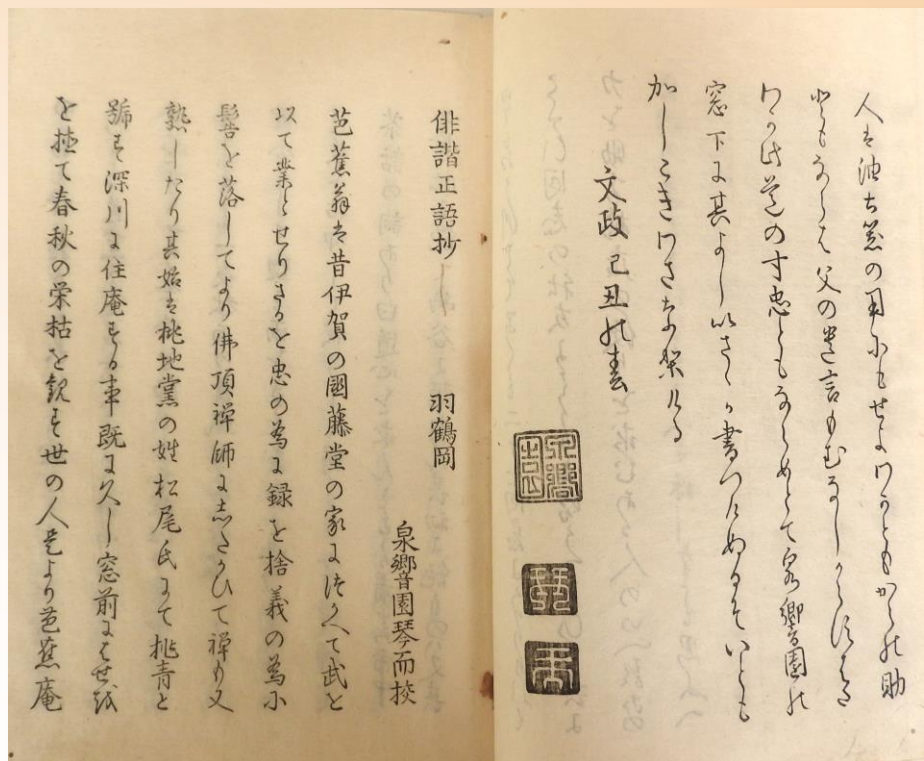 人は油土器の用にもせよわかともからの助
ともならは父の遺言もむなしからすはた
わか此道の寸忠ともならめとて泉響園の
窓下に其よしいさゝか書つたぬるそいとも
かしこきわさな梨ける
文政己丑の春
俳諧正語抄
羽鶴岡
泉響園琴而校
芭蕉翁は昔伊賀の國藤堂の家に仕へて武を
以て業とせりさるを忠の為に録を捨義の為に
髻を落してより佛頂禅師にしたかひて禅も又
熟したり其始は桃地黨の姓松尾氏にて桃青と
號す深川に住庵する事既に久し窓前にはせを
を植て春秋の栄枯を観す世の人是より芭蕉庵